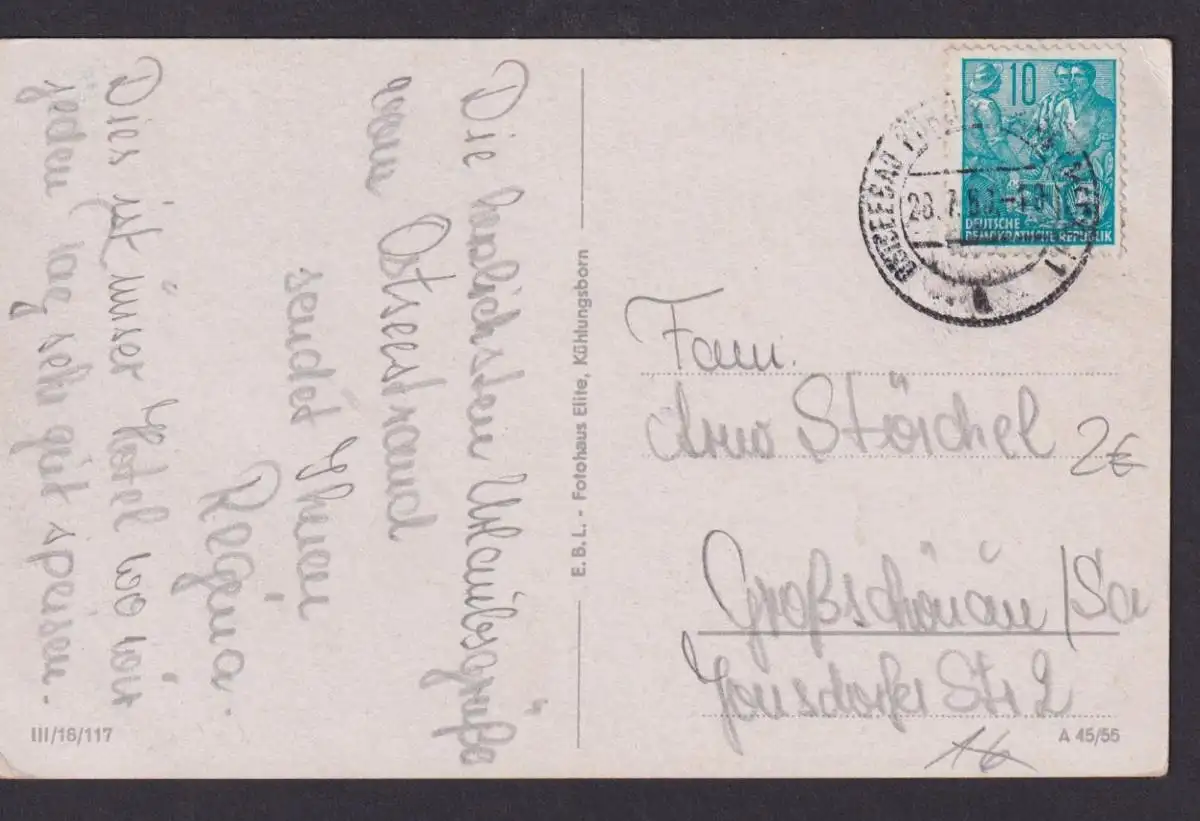 Die herzlichsten Urlaubsgrüße
vom Ostseestrand
sendet Ihnen
Regina.
Dies ist unser Hotel wo wir
jeden Tag sehr gut speisen.
E.B.L. - Fotohaus Elite, Kühlungsborn
10
DEUTSCHE
DEMOKRATISCHE REPUBLIK
OSTSEEBAD
28.7.
Fam.
Arno Störchel
2€
Großschönau/Sa
Jonsdorfer Str 2
16
III/18/117
A 45/55